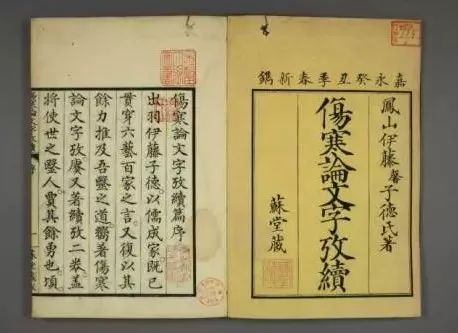 嘉永癸丑季春新鐫
鳳山伊藤馨子德氏著
傷寒論文字攷續
蘇堂藏
傷寒論文字攷續篇序
出羽伊藤子德以儒成家既已
貫穿六藝百家之言又復以其
餘力推及吾毉之道嚮著傷寒
論文字攷又著續攷二盖
將使世之毉人賈其餘勇也頃